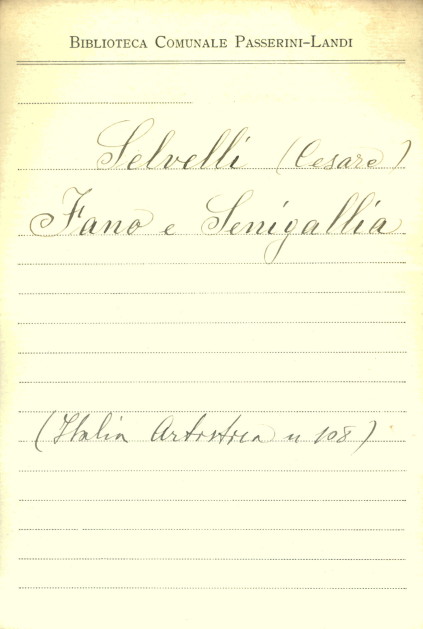 BIBLIOTECA COMUNALE PASSERINI-LANDI
Selvelli (Cesare)
Fano e Senigallia
(Italia Artistica n 108)